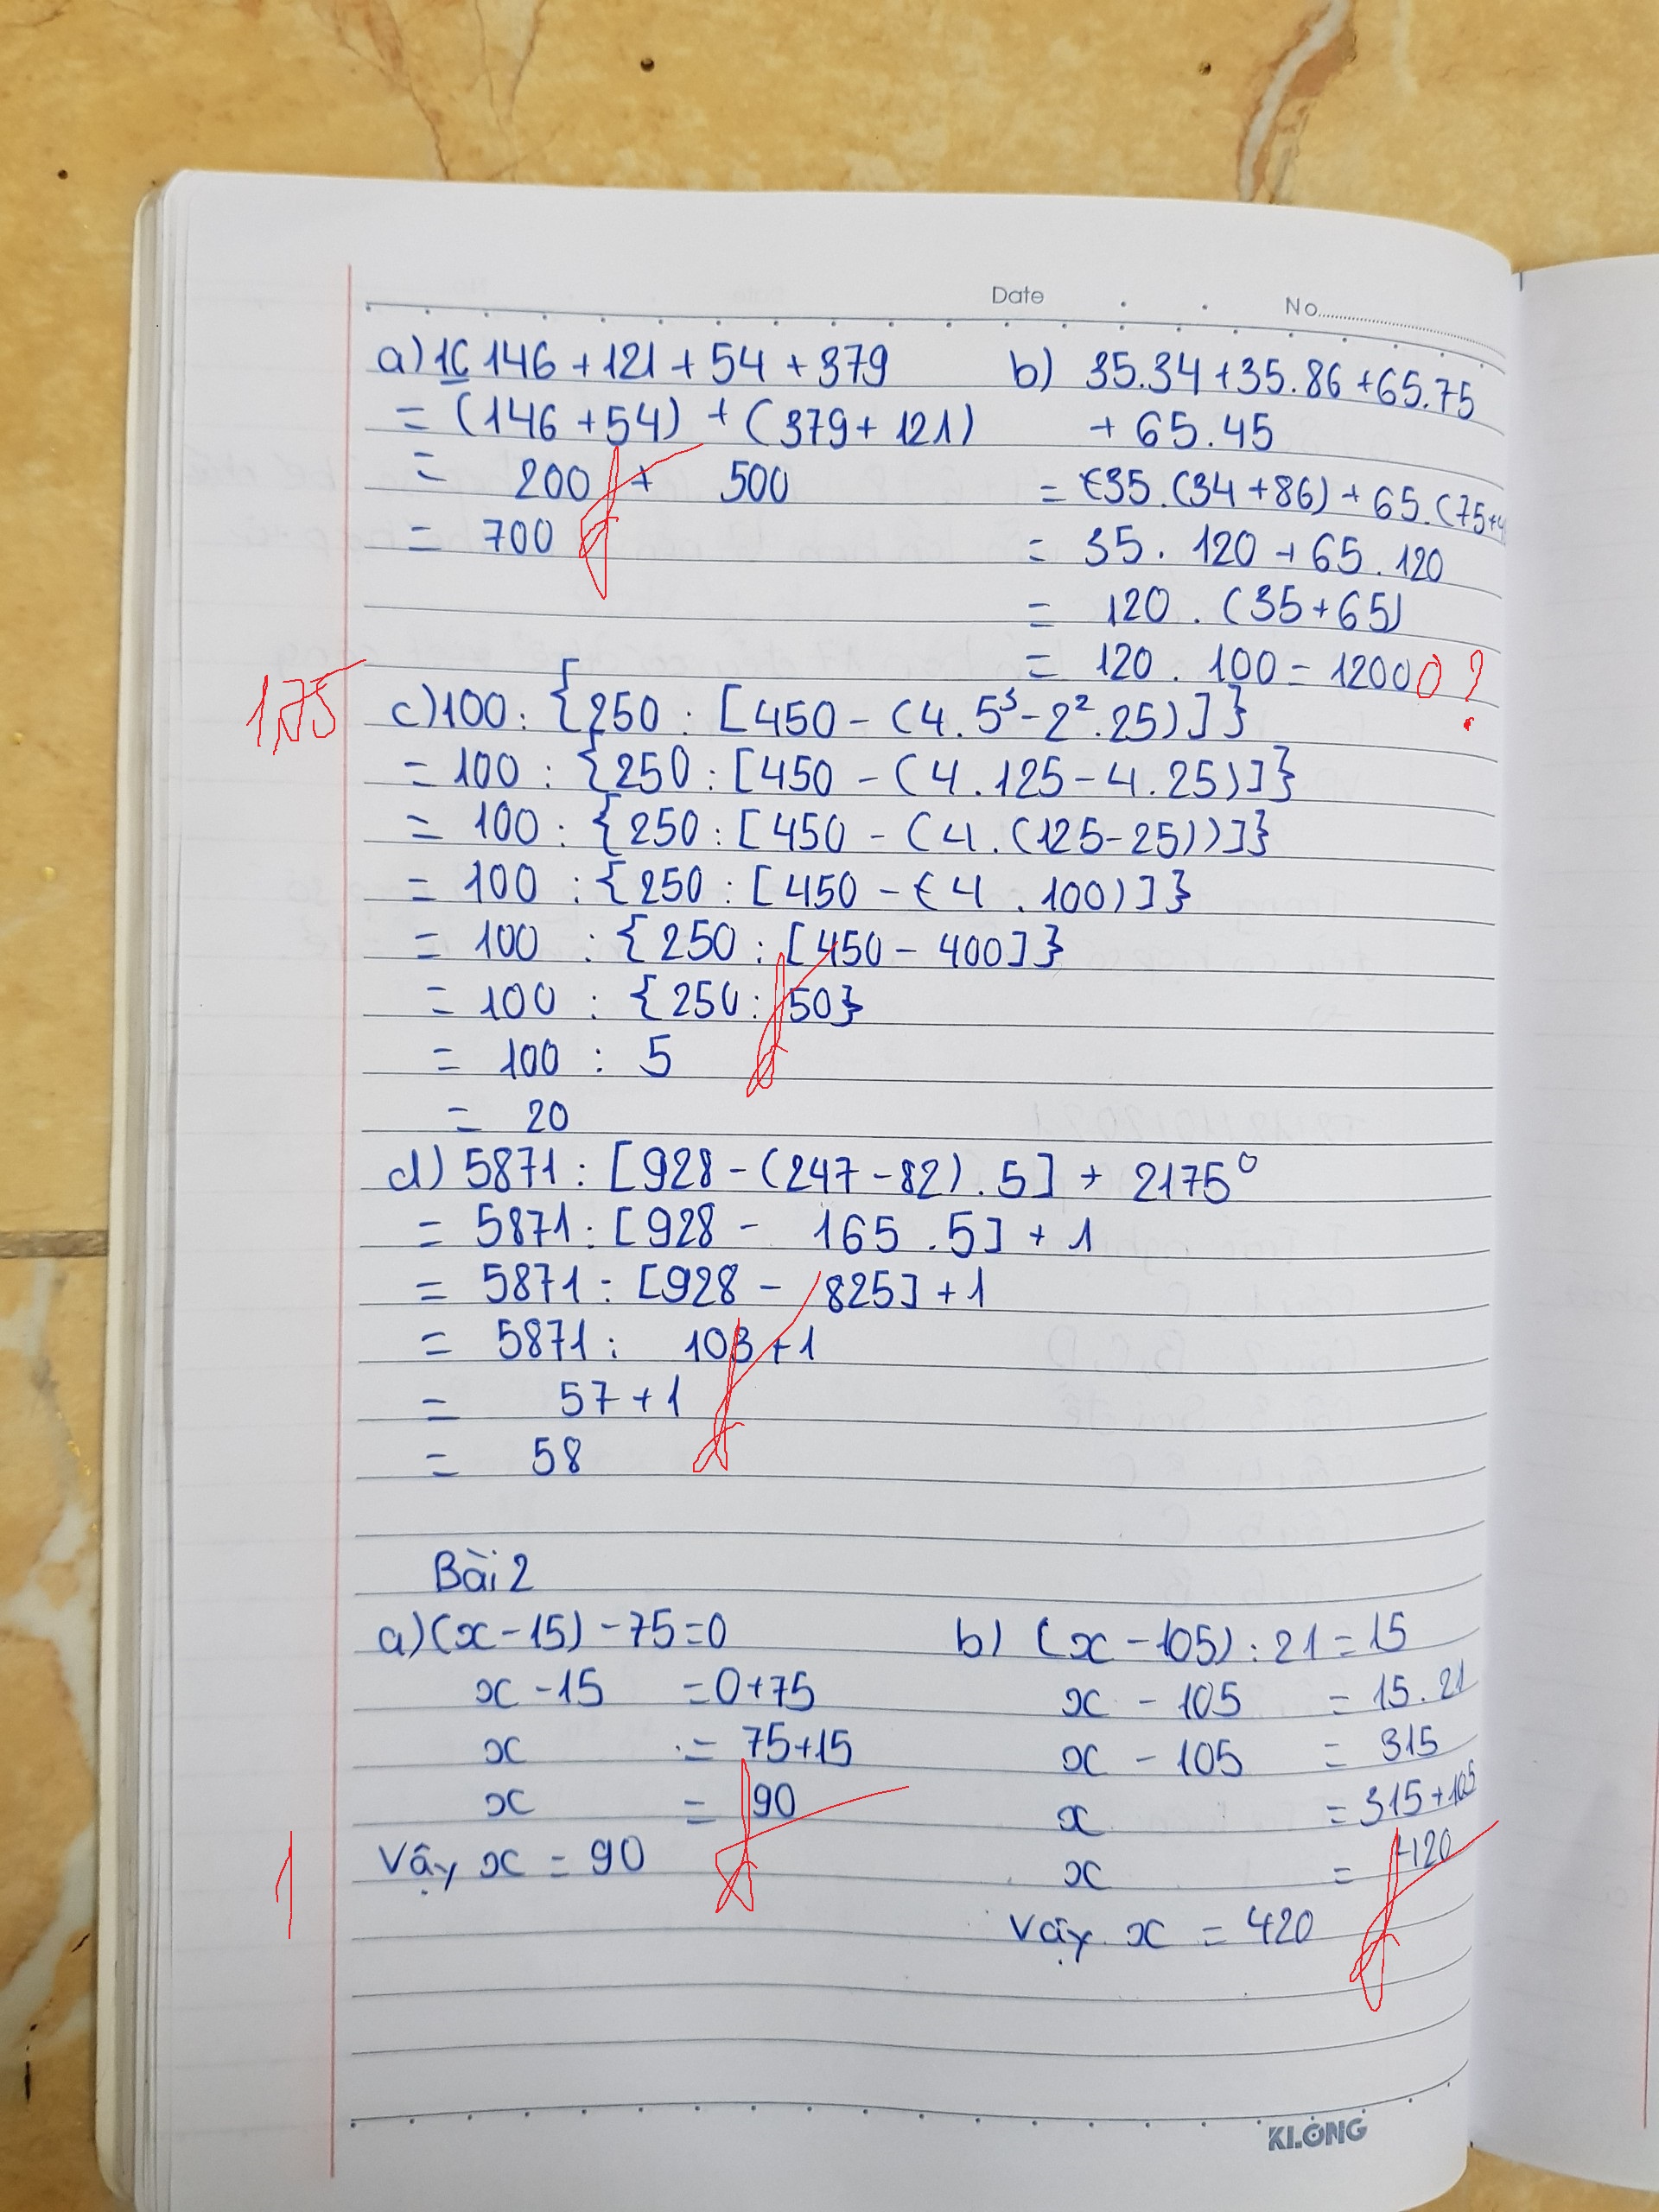 Date No.
a) 1C 146 + 121 + 54 + 379
= (146 + 54) + (379 + 121)
= 200 + 500
= 700
b) 35.34 + 35.86 + 65.75
+ 65.45
= (35.(34 + 86) + 65.(75+4
= 35. 120 + 65. 120
= 120 . (35 + 65)
= 120 . 100 = 12000 ?
1,75
c) 100 : {250 : [450 - (4. 5³ - 2². 25)]}
= 100 : {250 : [450 - (4. 125 - 4. 25)]}
= 100 : {250 : [450 - (4. (125 - 25))]}
= 100 : {250 : [450 - (4 . 100)]}
= 100 : {250 : [450 - 400]}
= 100 : {250 : 50}
= 100 : 5
= 20
d) 5871 : [928 - (247 - 82) . 5] + 2175⁰
= 5871 : [928 - 165 . 5] + 1
= 5871 : [928 - 825] + 1
= 5871 : 103 + 1
= 57 + 1
= 58
Bài 2
a) (x - 15) - 75 = 0
x - 15 = 0 + 75
x = 75 + 15
x = 90
Vậy x = 90
b) (x - 105) : 21 = 15
x - 105 = 15. 21
x - 105 = 315
x = 315 + 105
x = 420
Vậy x = 420
1
KLONG